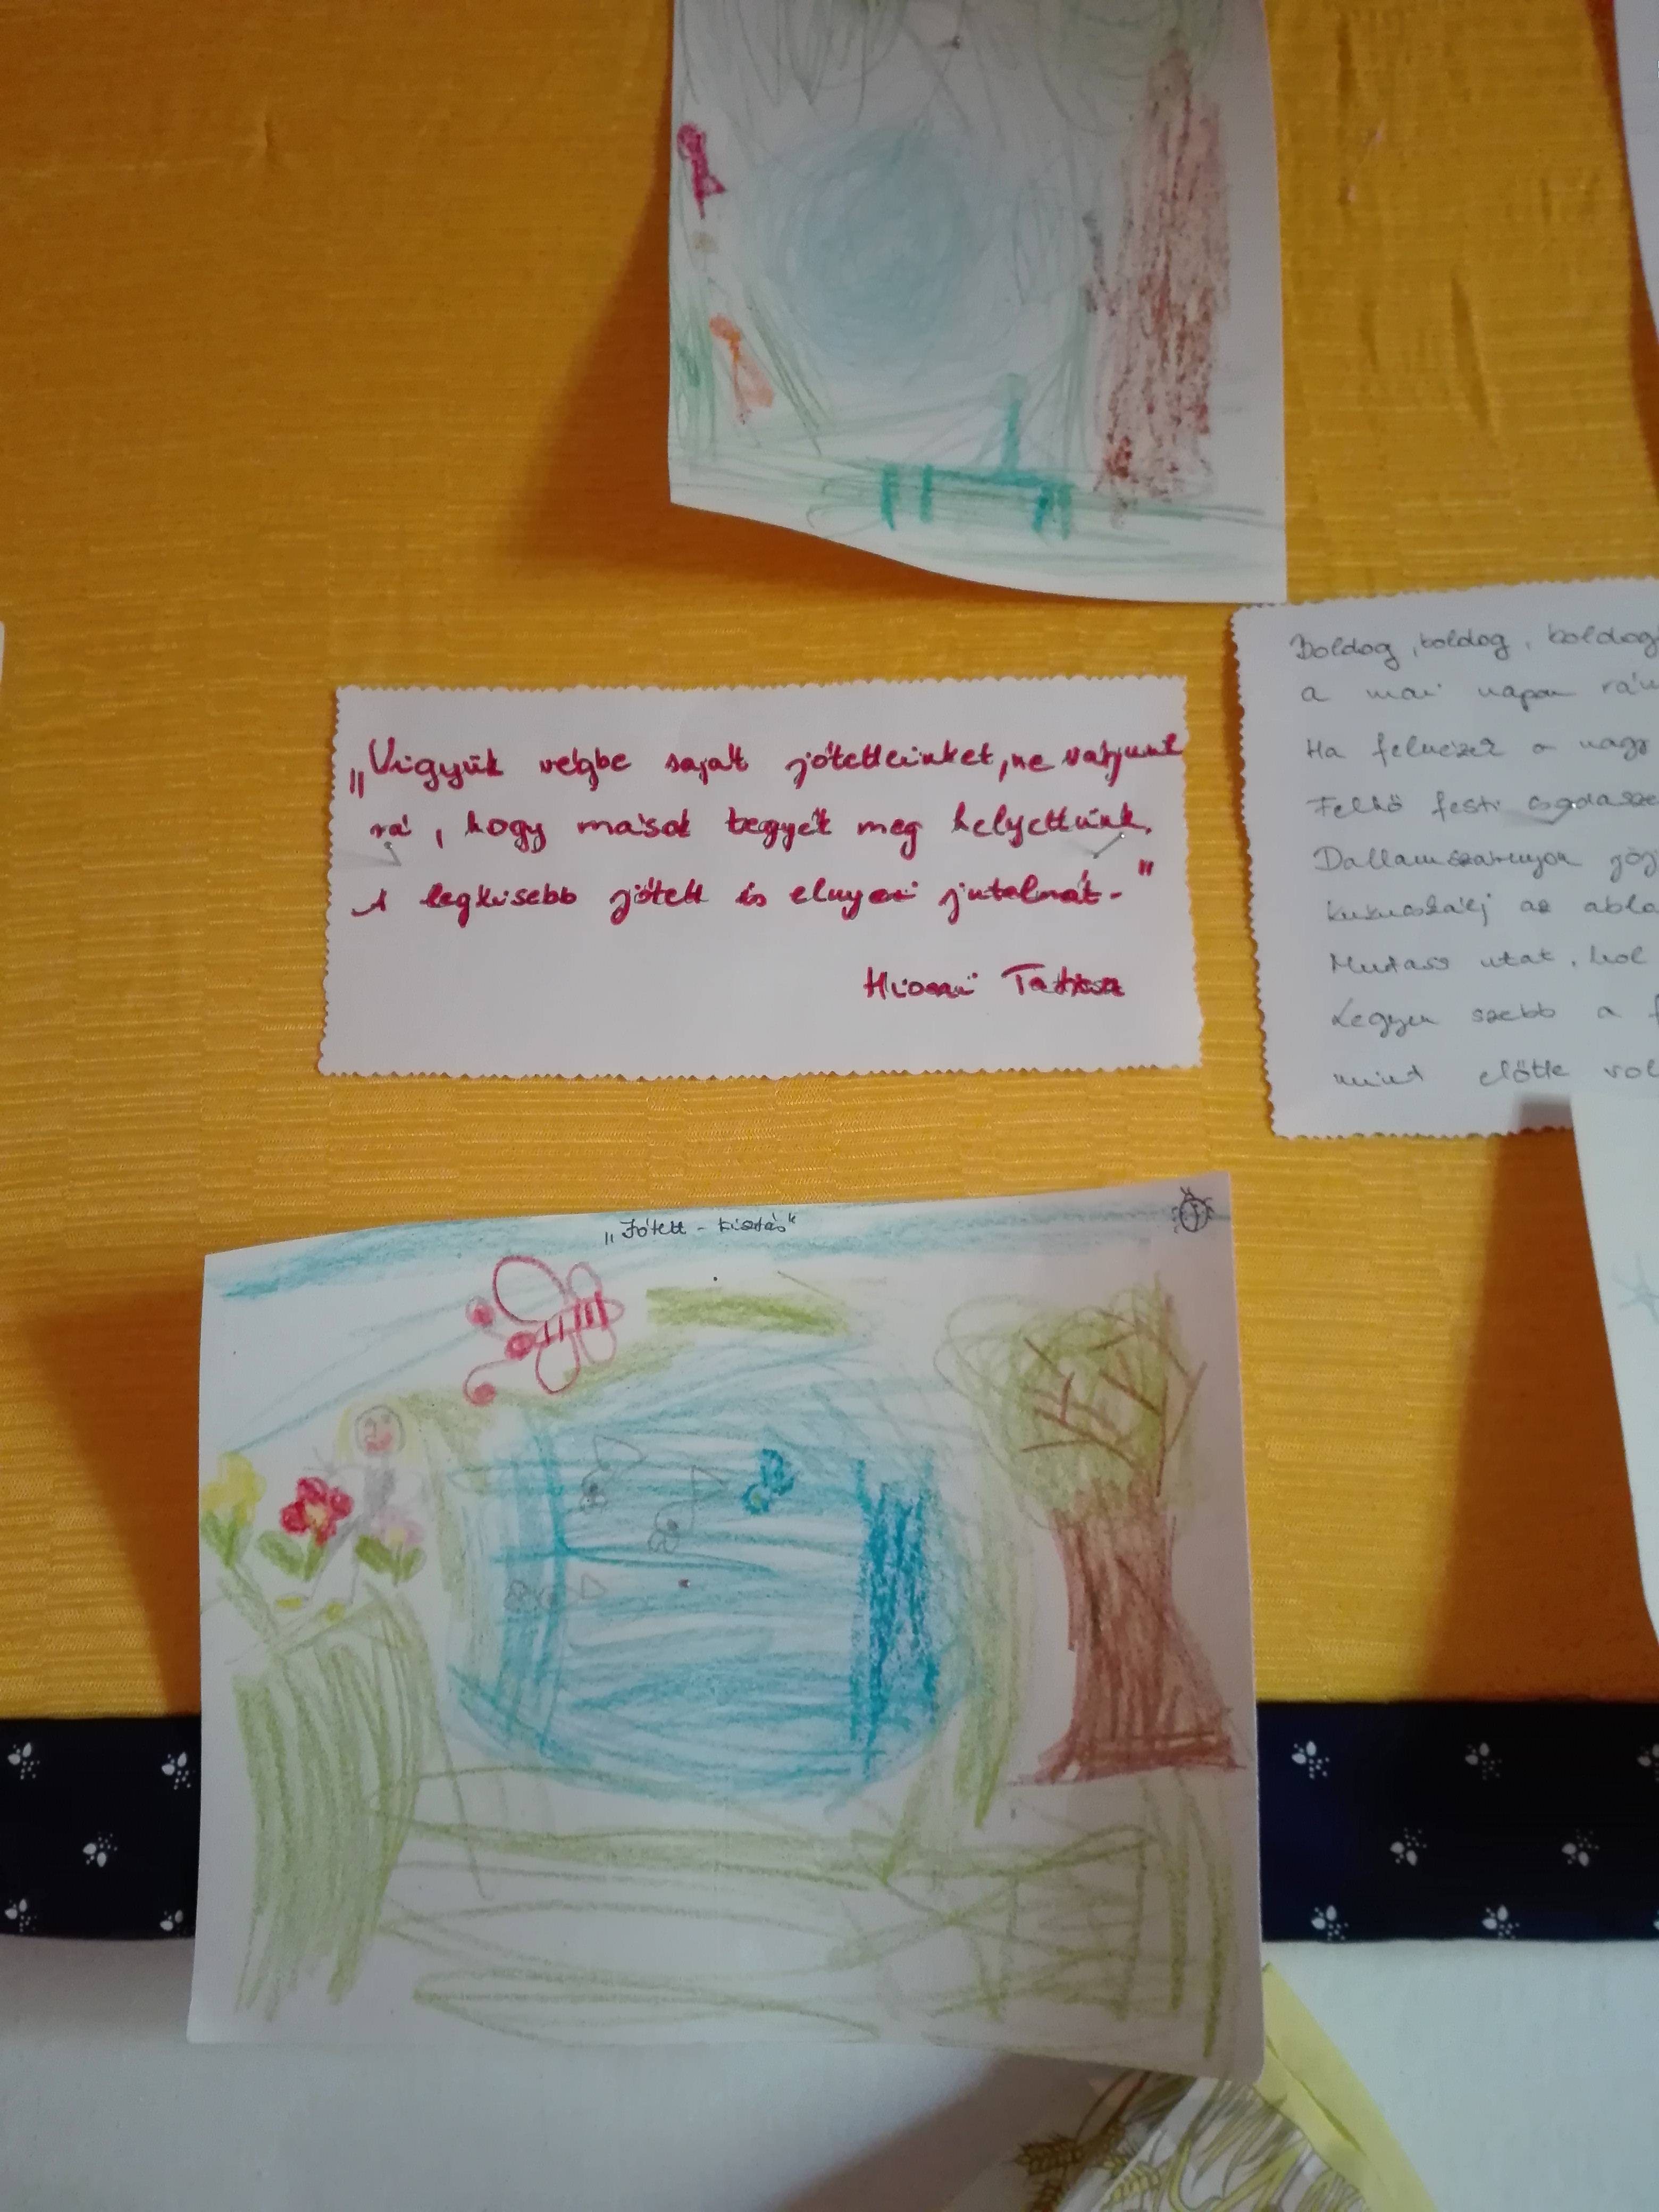 „Vigyük végbe saját jótetteinket, ne várjunk
rá, hogy mások tegyék meg helyettünk.
A legkisebb jótett is elnyeri jutalmát."
Hioszi Tatiosz
Boldog, boldog, boldog
a mai napon
Ha felnézel a nagy
Felhő festi csodasze
Dallamszárnyon
kukucskálj az abla
Mutass utat, hol
Legyen szebb a
mint előtte vol
„Jótett - kisokos"